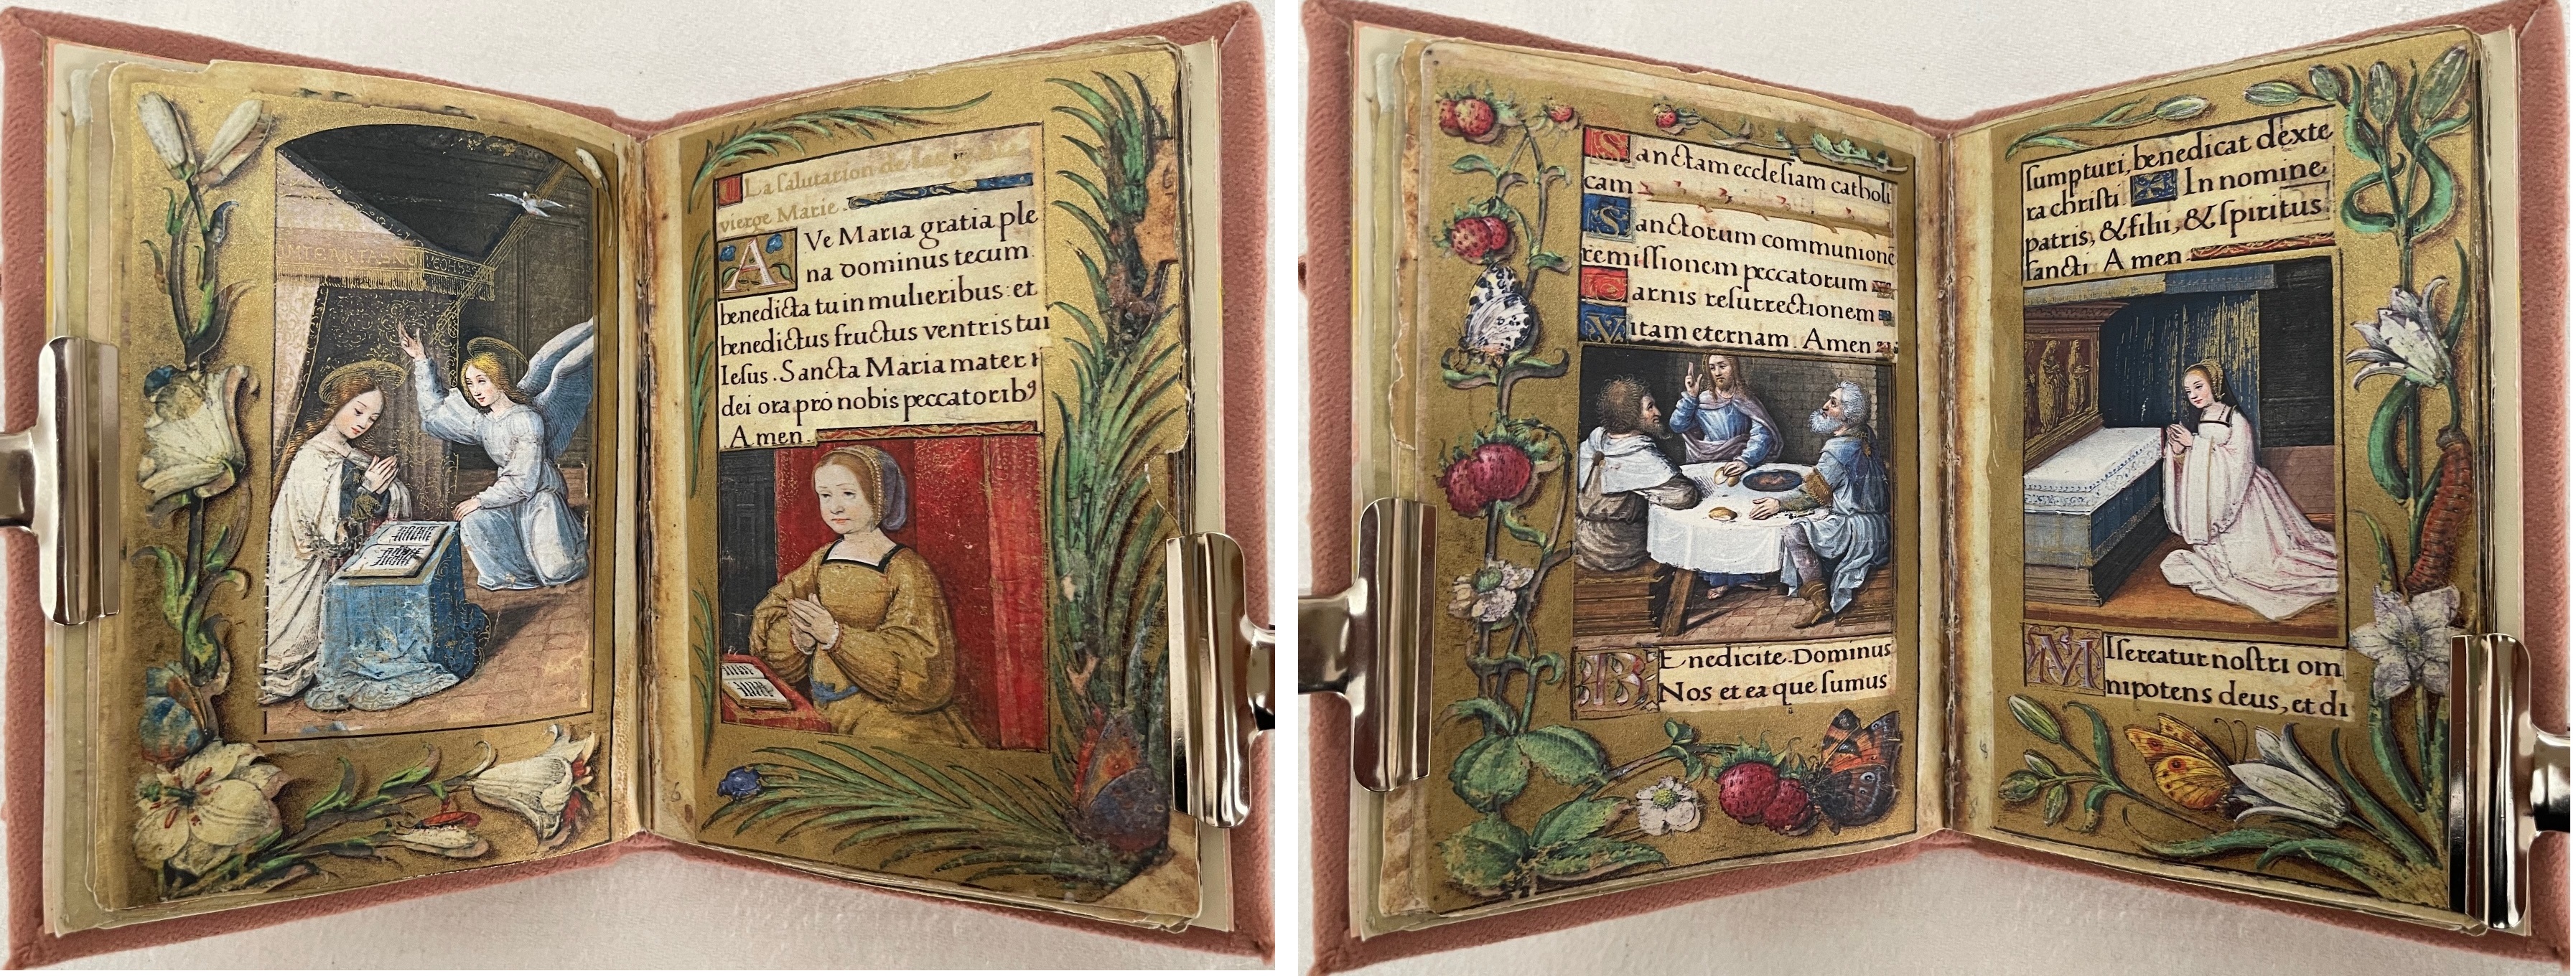 La salutation de la
vierge Marie
AVe Maria gratia ple
na dominus tecum.
benedicta tu in mulieribus: et
benedictus fructus ventris tui
Iesus. Sancta Maria mater
dei ora pro nobis peccatoribꝰ
Amen.
Sanctam ecclesiam catholi
cam
Sanctorum communionē
remissionem peccatorum
Carnis resurrectionem
Vitam eternam. Amen
BEnedicite. Dominus
Nos et ea que sumus
sumpturi, benedicat dexte
ra christi. In nomine
patris, & filii, & spiritus
sancti. Amen
MIsereatur nostri om
nipotens deus, et di